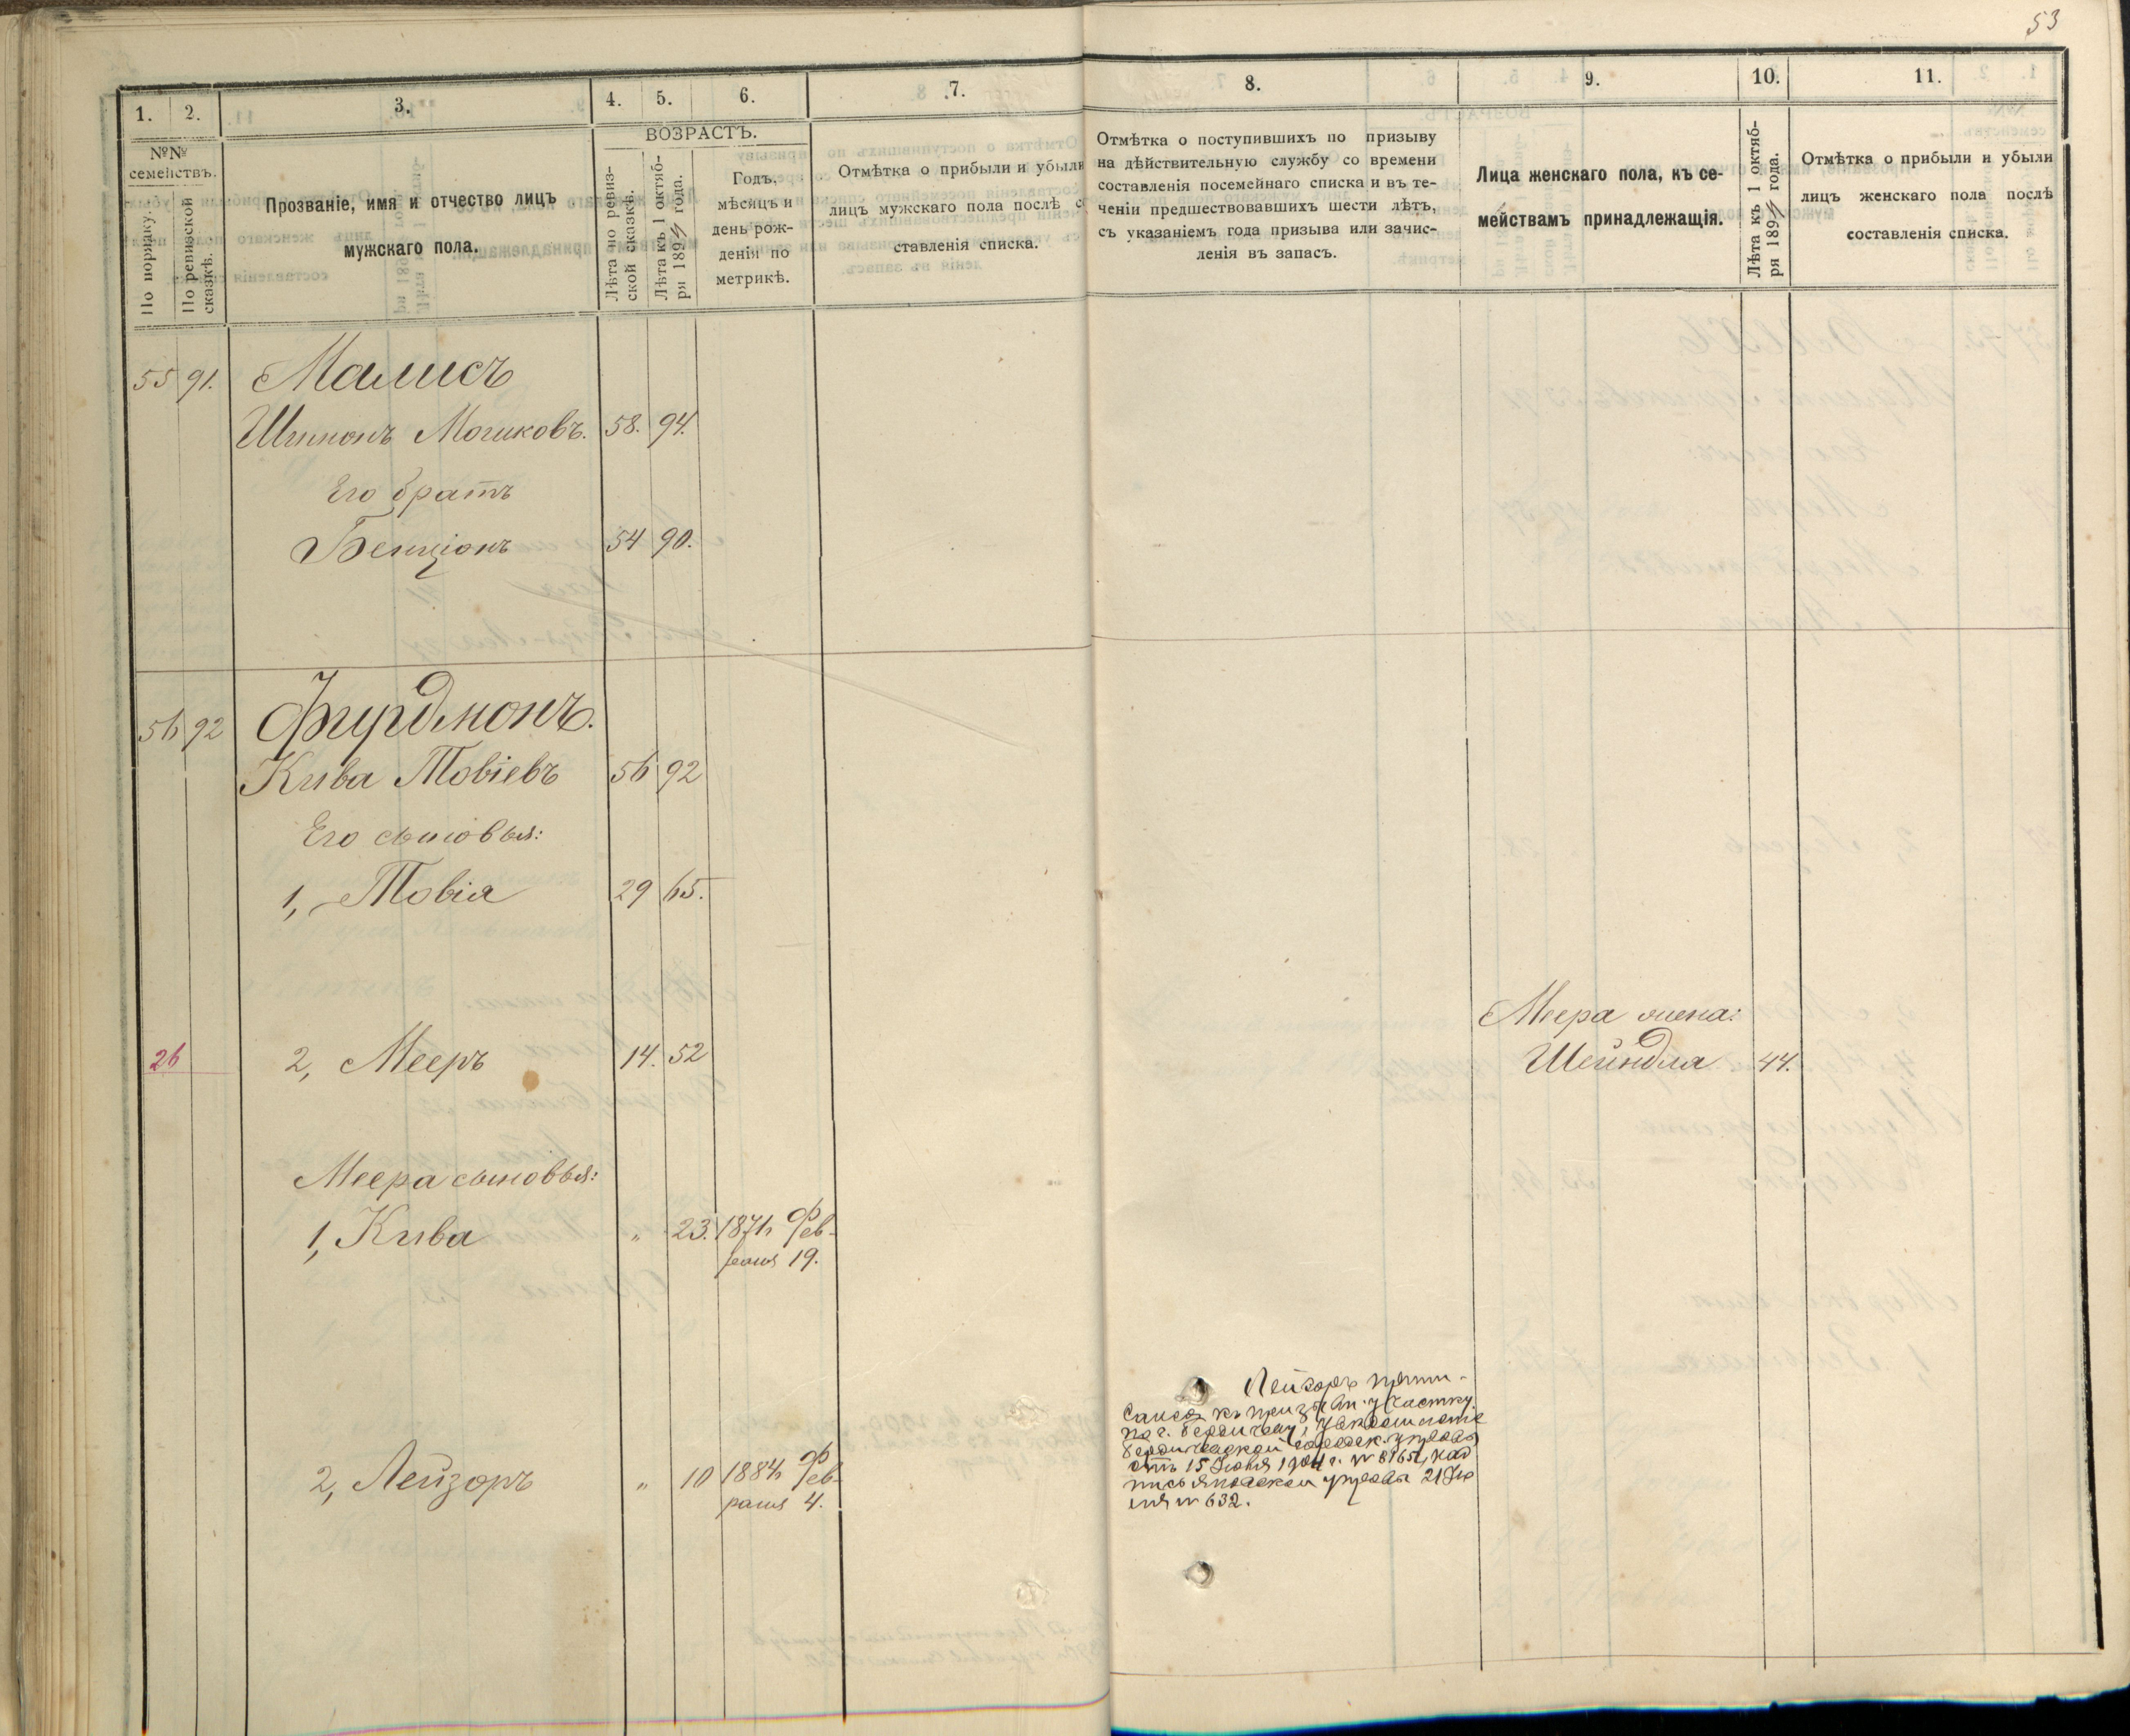 53
1.
2.
3.
4.
5.
6.
7.
8.
9.
10.
11.
№№ семействъ.
По порядку.
По ревизской сказкѣ.
Прозваніе, имя и отчество лицъ
мужскаго пола.
ВОЗРАСТЪ.
Лѣта по ревиз-
ской сказкѣ.
Лѣта къ 1 октяб-
ря 1894 года.
Годъ,
мѣсяцъ и
день рож-
денія по
метрикѣ.
Отмѣтка о прибыли и убыли
лицъ мужскаго пола послѣ со
ставленія списка.
Отмѣтка о поступившихъ по призыву
на дѣйствительную службу со времени
составленія посемейнаго списка и въ те-
ченіи предшествовавшихъ шести лѣтъ,
съ указаніемъ года призыва или зачис-
ленія въ запасъ.
Лица женскаго пола, къ се-
мействамъ принадлежащія.
Лѣта къ 1 октяб-
ря 1894 года.
Отмѣтка о прибыли и убыли
лицъ женскаго пола послѣ
составленія списка.
55 91. Малисъ
Шимонъ Мошковъ. 58. 94.
Его братъ
Бенціонъ 54 90.
56 92 Фурдманъ.
Кива Товіевъ 56 92
Его сыновья:
1, Товія 29 65.
Меера жена:
26 2, Мееръ 14. 52 Шейндля 44.
Меера сыновья:
1, Кива " 23. 1871 Фев-
раля 19.
2, Лейзоръ " 10 1884 Фев-
раля 4.
Лейзоръ припи-
санъ къ призывн. участку
по г. Бердичеву,
Бердичевской городск. управы
отъ 15 Іюня 1904 г. № 8165, над
пись управы 21 Ію
ня № 632.